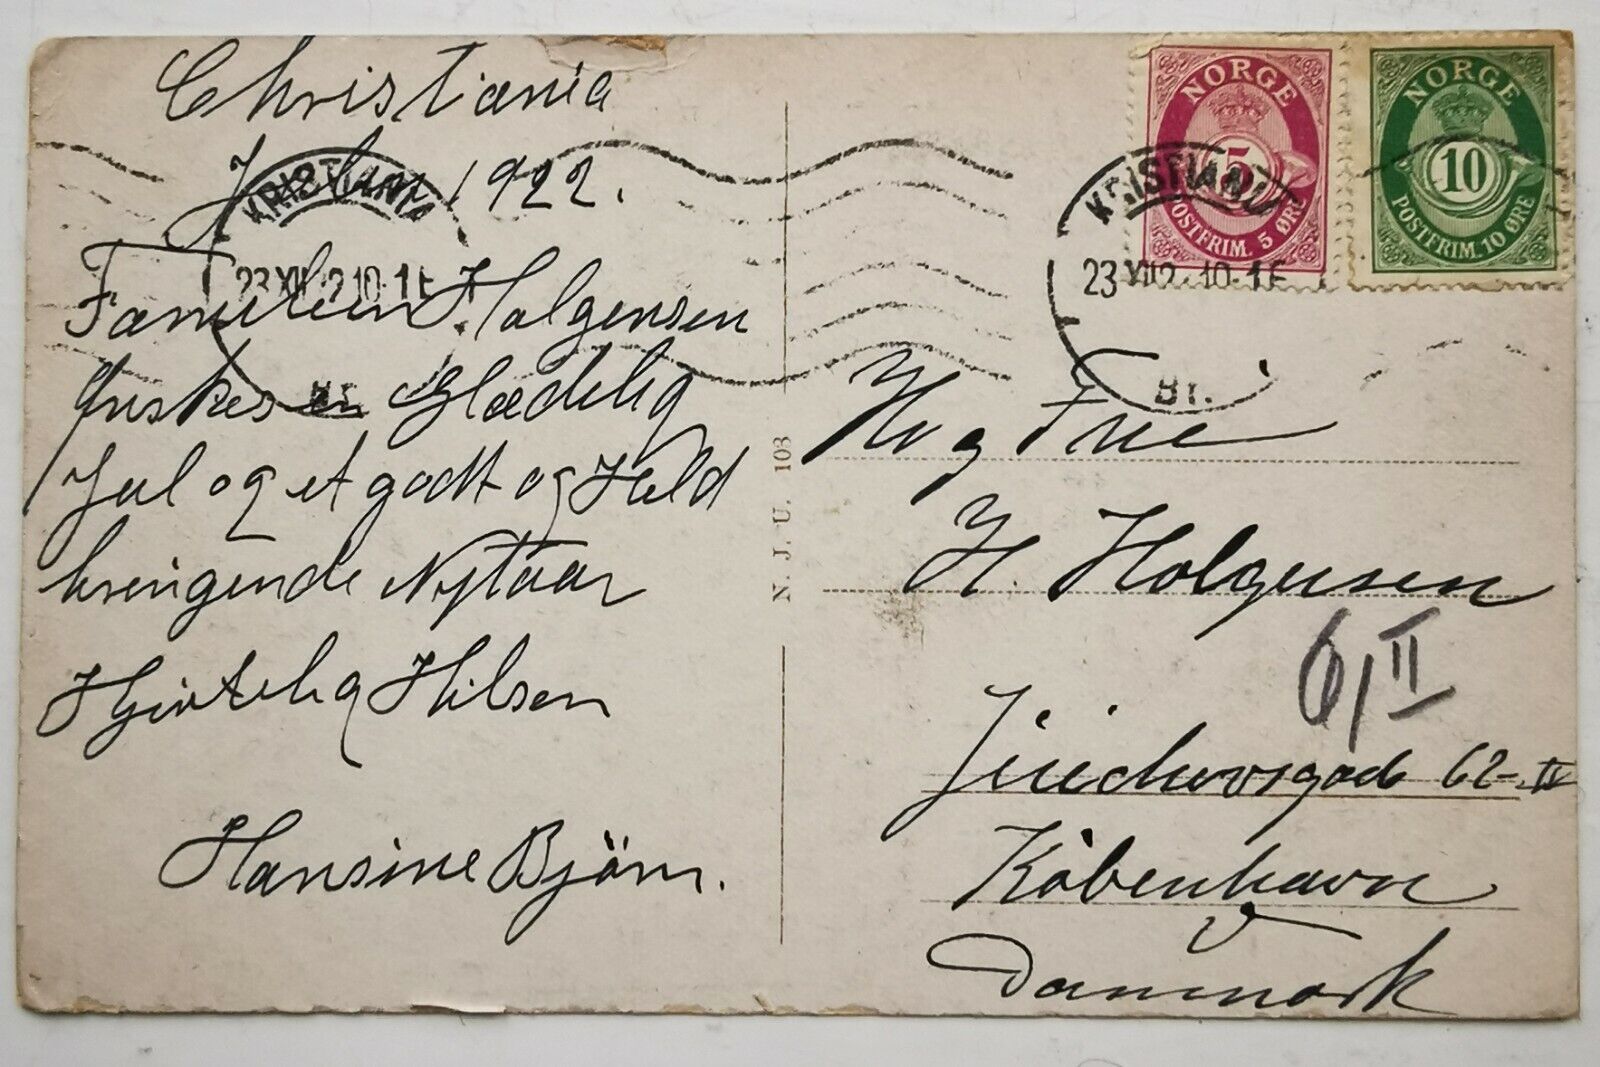 Christiania
Julen 1922.
Familien Holgersen
Ønskes en Glædelig
Jul og et godt og Held
bringende Nytaar
Hjertelig Hilsen
Hansine Björn.
N. J. U. 103
NORGE
5
POSTFRIM. 5 ØRE
NORGE
10
POSTFRIM. 10 ØRE
KRISTIANIA
23 XII 2 10-1E
BT.
KRISTIANIA
23 XII 2 10-1E
BT.
Hr og Frue
H. Holgersen
6, II
62-
København
Danmark